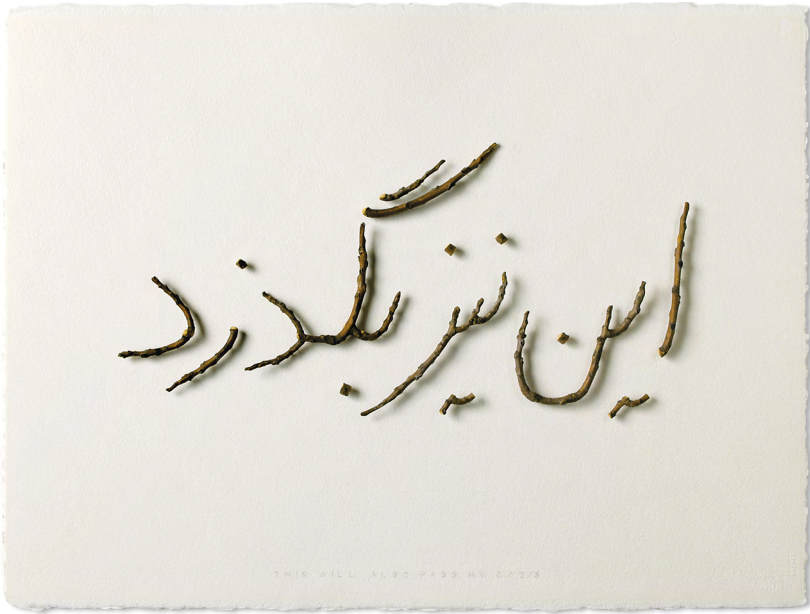 این نیز بگذرد
THIS WILL ALSO PASS